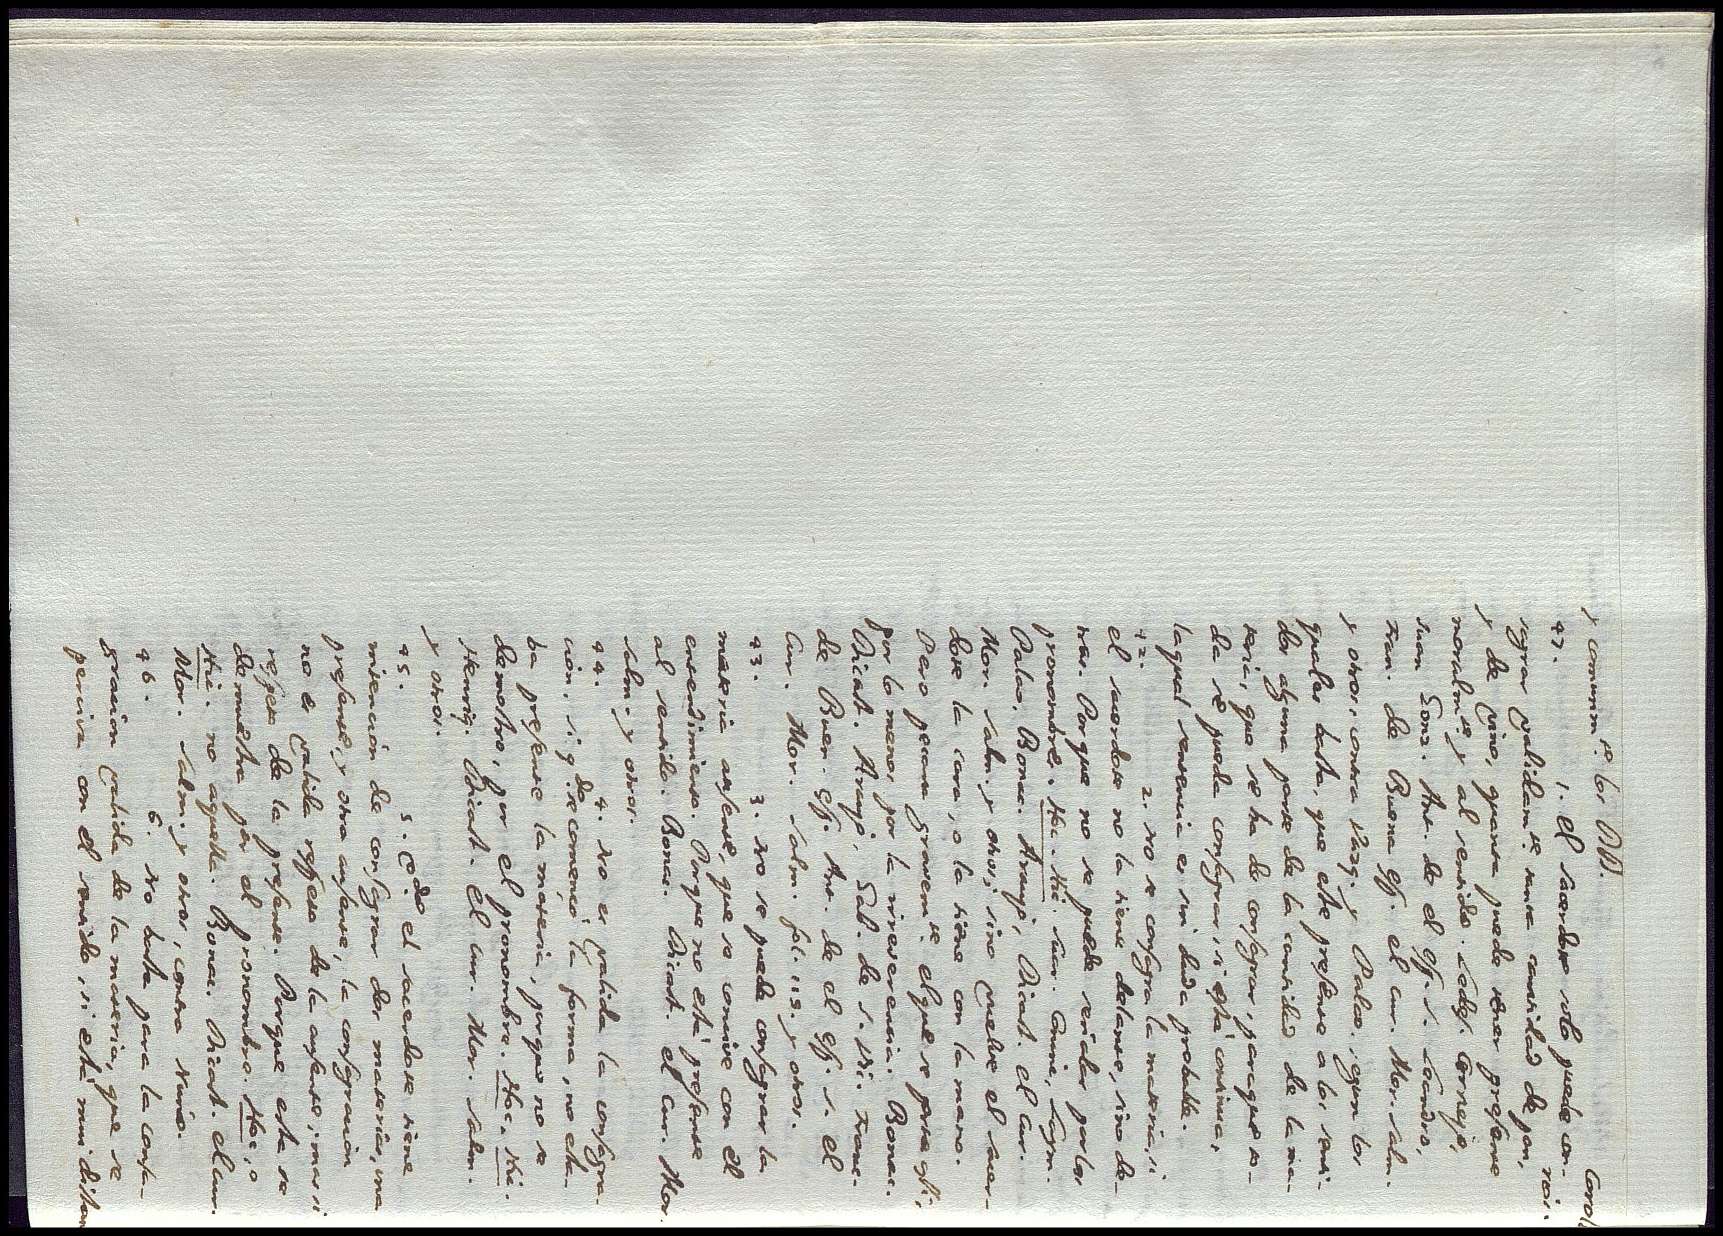 y comunm.te los DD. Corol-
47. 1. el sacerdote solo puede con- rios.
sagrar validam.te tanta cantidad de pan,
y de vino, quanta puede tener presente
moralm.te y al sentido. Ledes. Cornejo,
Juan Sonz. Ant. de el Esp. S. Leandro,
Fran. de Buena Esp. el cur. Mor. Salm.
y otros, contra Vazq. y Palao. segun los
quales basta, que esté presente a los senti-
dos alguna parte de la cantidad de la ma-
teria, que se ha de consagrar, paraque to-
da se pueda consagrar, si está continua,
la qual sentencia es sin duda probable.
42. 2. no se consagra la materia, si
el sacerdote no la tiene delante, sino de-
tras. Porque no se puede señalar por los
pronombres, Hoc. Hic. Suar. Conin, Laym.
Palao, Bonac. Arauj, Dicast. el Cur.
Mor. Salm. y otros; sino vuelve el sacer-
dote la cara, o la tiene con la mano.
Pero pecara gravem.te el que se porta assi,
por lo menos por la irreverencia. Bonac.
Dicast. Arauj, Gab. de S. Vi. Franc.
de Buen. Esp. Ant. de el Esp. S. el
Cur. Mor. Salm. fol. 119. y otros.
43. 3. no se puede consagrar la
materia ausente, que se concive con el
entendimiento. Porque no está presente
al sentido. Bonac. Dicast. el cur. Mor.
Salm. y otros.
44. 4. no es valida la consagra-
cion, si q.do se començo la forma, no esta-
ba presente la materia, porque no se
demostro, por el pronombre. Hoc, Hic.
Henriq. Dicast. el cur. Mor. Salm.
y otros.
45. 5. q.do el sacerdote tiene
intencion de consagrar dos materias, una
presente, y otra ausente, la consagracion
no es valida respecto de la ausente; mas si
respecto de la presente. Porque esta se
demuestra por el pronombre. Hoc, o
Hic. no aquella. Bonac. Dicast. el cur.
Mor. Salm. y otros, contra Nuño.
46. 6. no basta para la consa-
gracion valida de la materia, que se
perciva con el sentido, si está mui distan